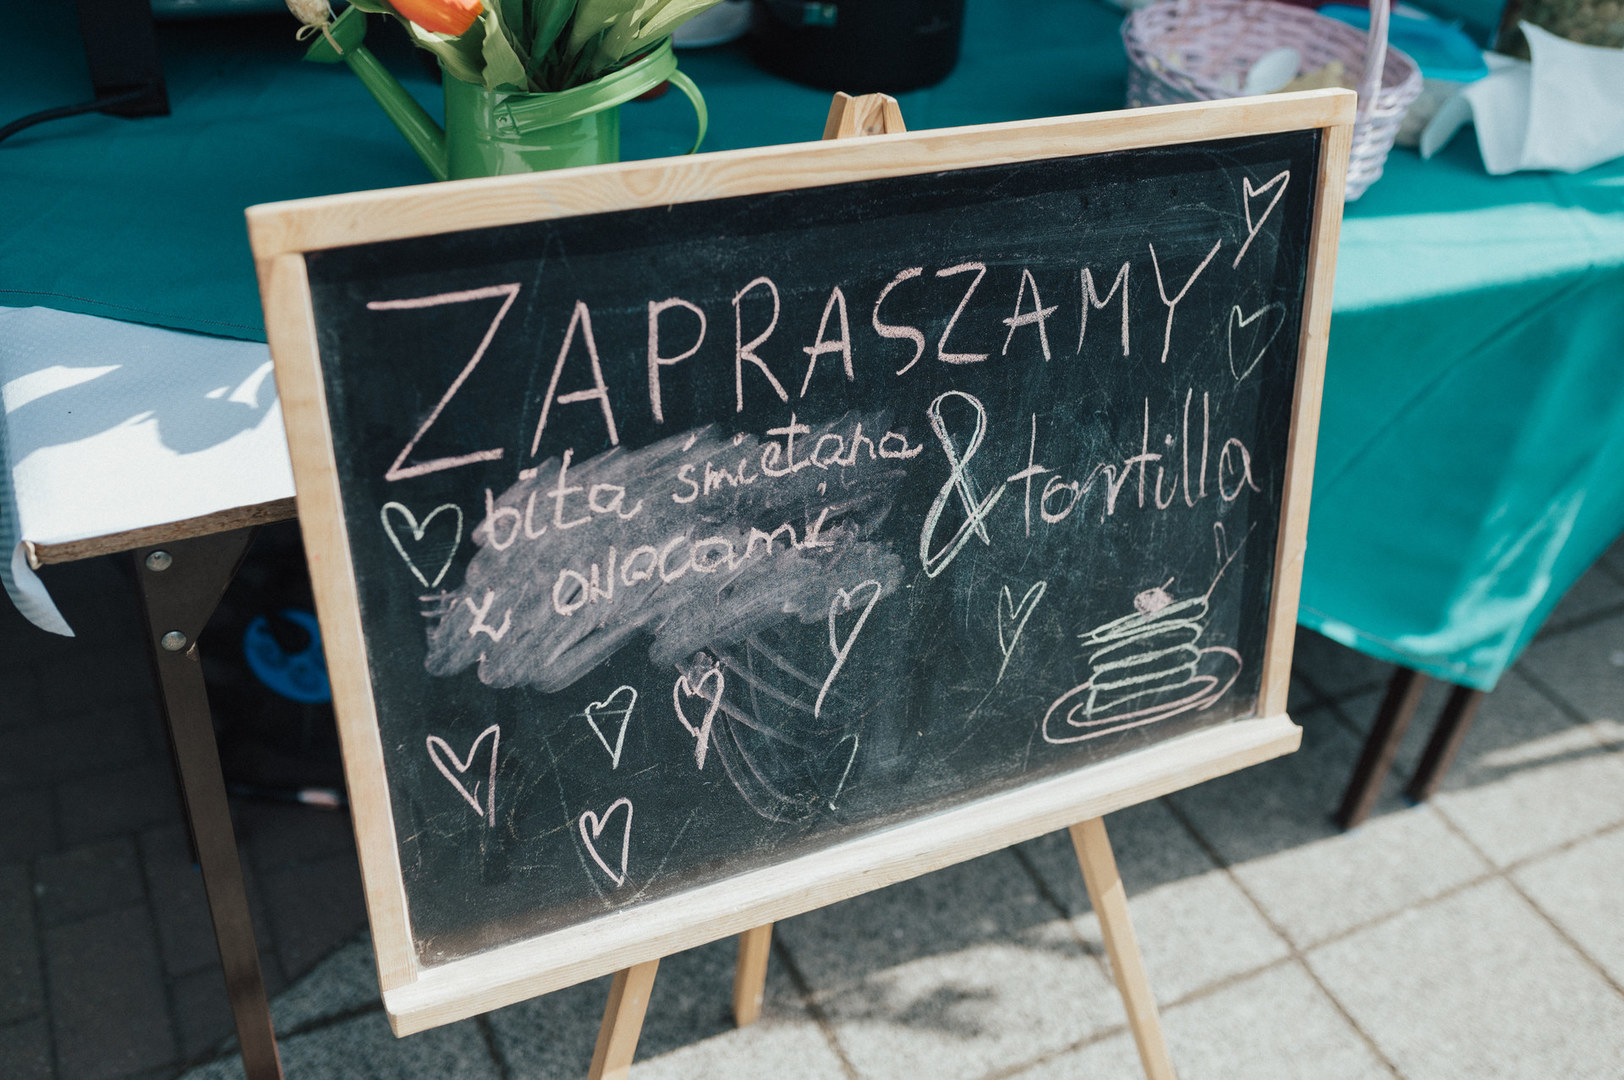 ZAPRASZAMY
bita śmietana & tortilla
z owocami